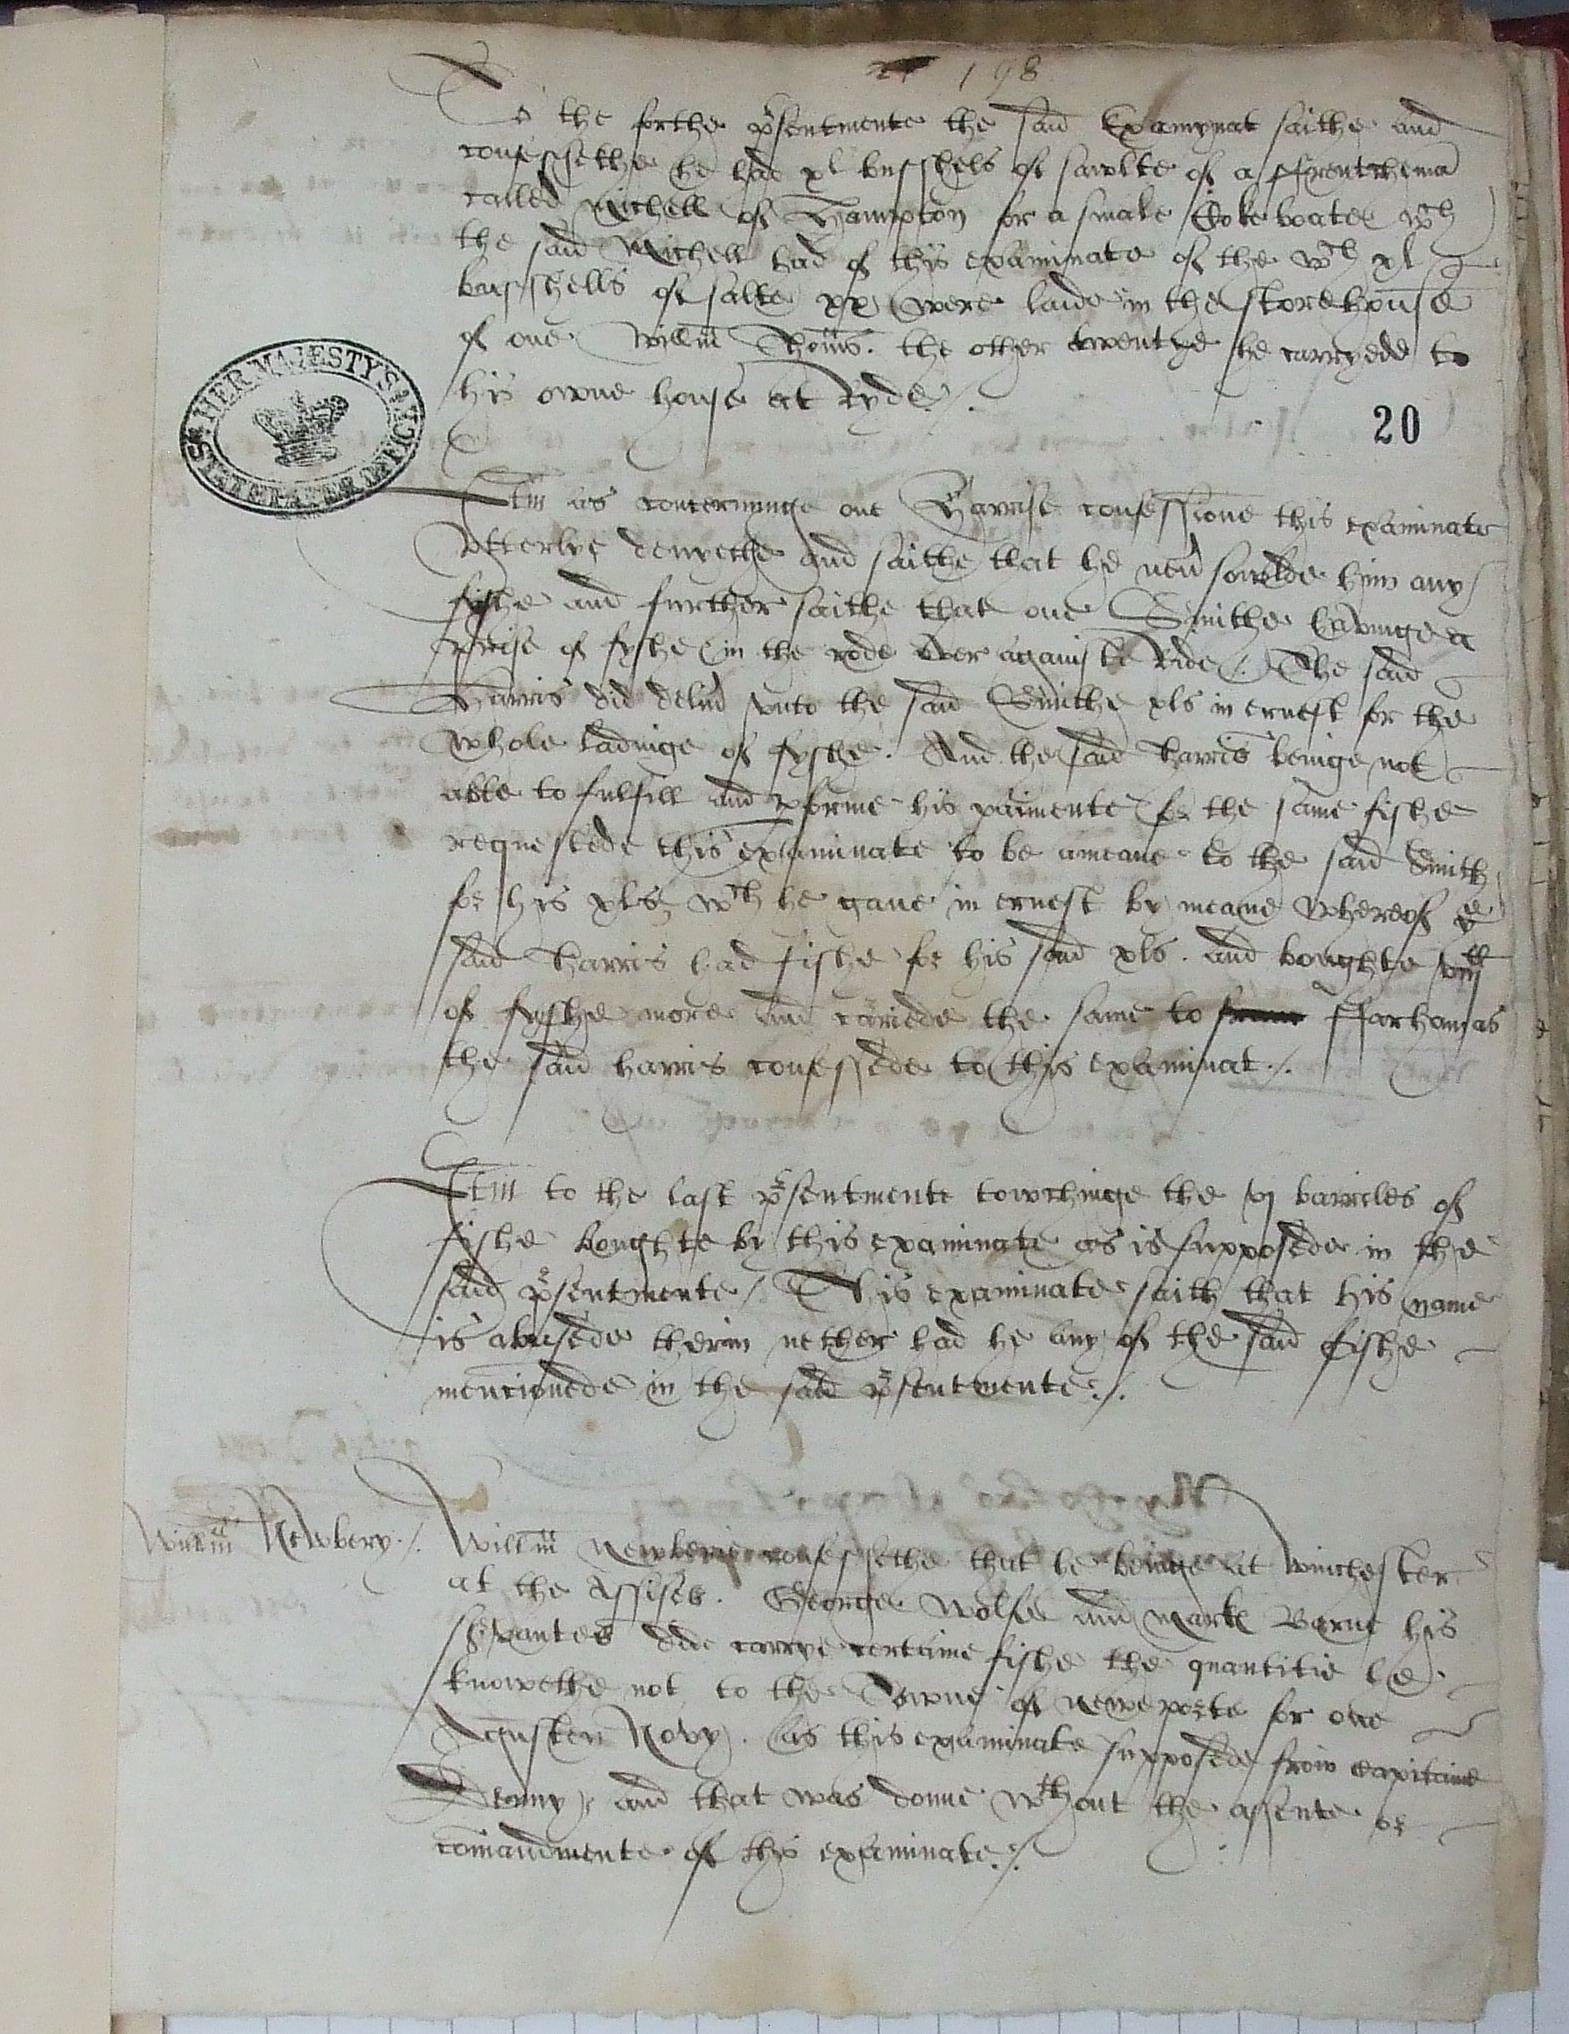 198
To the forthe p̄sentmente the said Examynat saithe and
confessethe he had xl busshels of sawlte of a ffrentchema
called Michell of Hampton for a smale Coke boate wch
the said Michell had of this examinate of the wch xl
busshells of salte xx were laide in the storehouse
of one Willm Thoms. the other twentye he carryede to
his owne house at Ryde./.
20
HER MAJESTY'S
STATE PAPER OFFICE
Itm as concerninge one Harrise confessione this examinate
Vtterlye denyethe and saithe that he neu sowlde him any
fyshe and further saithe that one Smithe havinge a
prise of fyshe in the rode over againste Ride /. The said
Harris did deliu vnto the said Smithe xls in ernest for the
whole ladinge of fyshe. And the said Harris beinge not
able to fulfill and pforme his paimente for the same fishe
requestede this examinate to be a meane to the said Smith
for his xls wch he gaue in ernest by meane Whereof ye
said Harris had fishe for his said xls. and boughte
of fyshe more and cariede the same to ffarham as
the said harris confessede to this examinat./.
Itm to the last p̄sentmente towchinge the vj barreles of
fyshe boughte by this examinate as is supposede in the
said p̄sentmente /. This examinate saith that his name
is abusede therin nether had he any of the said fishe
mencionede in the said p̄sentmente./.
Willm Newbery./.
Willm Newberie confessethe that he beinge at Winchester
at the Assises. George Wolfe and Marke Barne his
s̄vantes did carrye certaine fishe the quantitie he
knowethe not to the Towne of Neweporte for one
Agusten Novy. as this examinate supposede from Capitaine
Denny and that was donne wthout the assente or
comandmente of this examinate./.